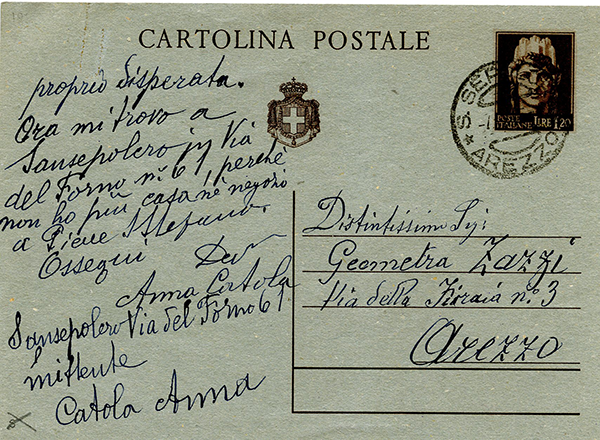 CARTOLINA POSTALE
POSTE
ITALIANE LIRE 1,20
AREZZO
proprio disperata.
Ora mi trovo a
Sansepolcro in Via
del Forno n. 61, perché
non ho più casa né negozio
a Pieve S Stefano.
Ossequi Dev
Anna Catola
Sansepolcro Via del Forno 61
mittente
Catola Anna
Distintissimo Sig:
Geometra Zazzi
Via della Fioraia n. 3
Arezzo